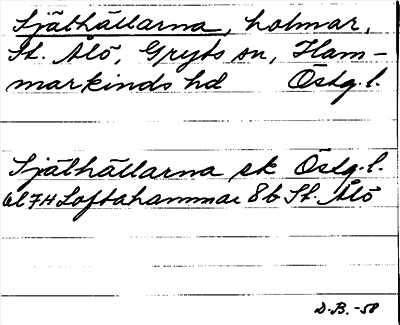 Sjäthällarna, holmar,
St. Ålö, Gryts sn, Ham-
markinds hd Östg.l.
Sjäthällarna sk Östg.l.
bl 7H Loftahammar 8b St. Ålö
D.B.-58